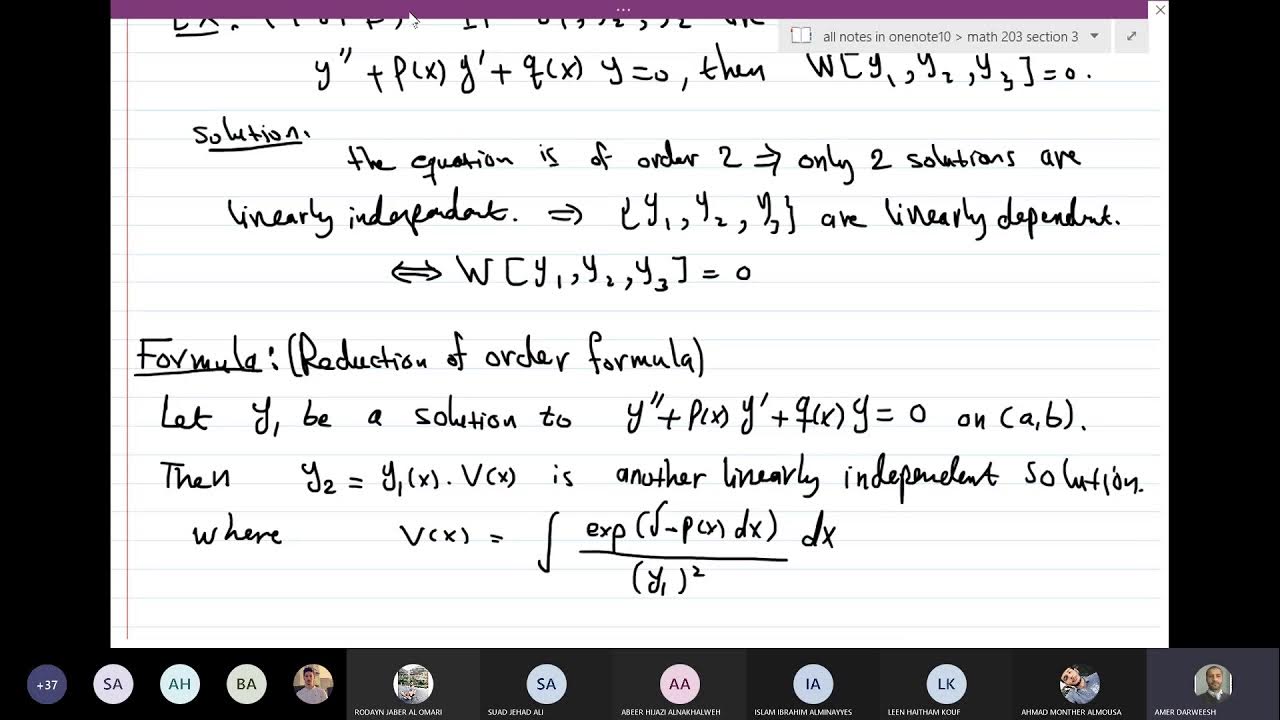 all notes in onenote10 > math 203 section 3
y'' + p(x) y' + q(x) y = 0, then W[y₁, y₂, y₃] = 0.
Solution.
the equation is of order 2 ⇒ only 2 solutions are
linearly independent. ⇒ {y₁, y₂, y₃} are linearly dependent.
⇔ W[y₁, y₂, y₃] = 0
Formula: (Reduction of order formula)
Let y₁ be a solution to y'' + p(x) y' + q(x) y = 0 on (a,b).
Then y₂ = y₁(x). v(x) is another linearly independent solution.
where v(x) = ∫ exp(∫-p(x) dx) / (y₁)² dx
+37 SA AH BA SA AA IA LK
RODAYN JABER AL OMARI SUAD JEHAD ALI ABEER HIJAZI ALNAKHALWEH ISLAM IBRAHIM ALMINAYYES LEEN HAITHAM KOUF AHMAD MONTHER ALMOUSA AMER DARWEESH